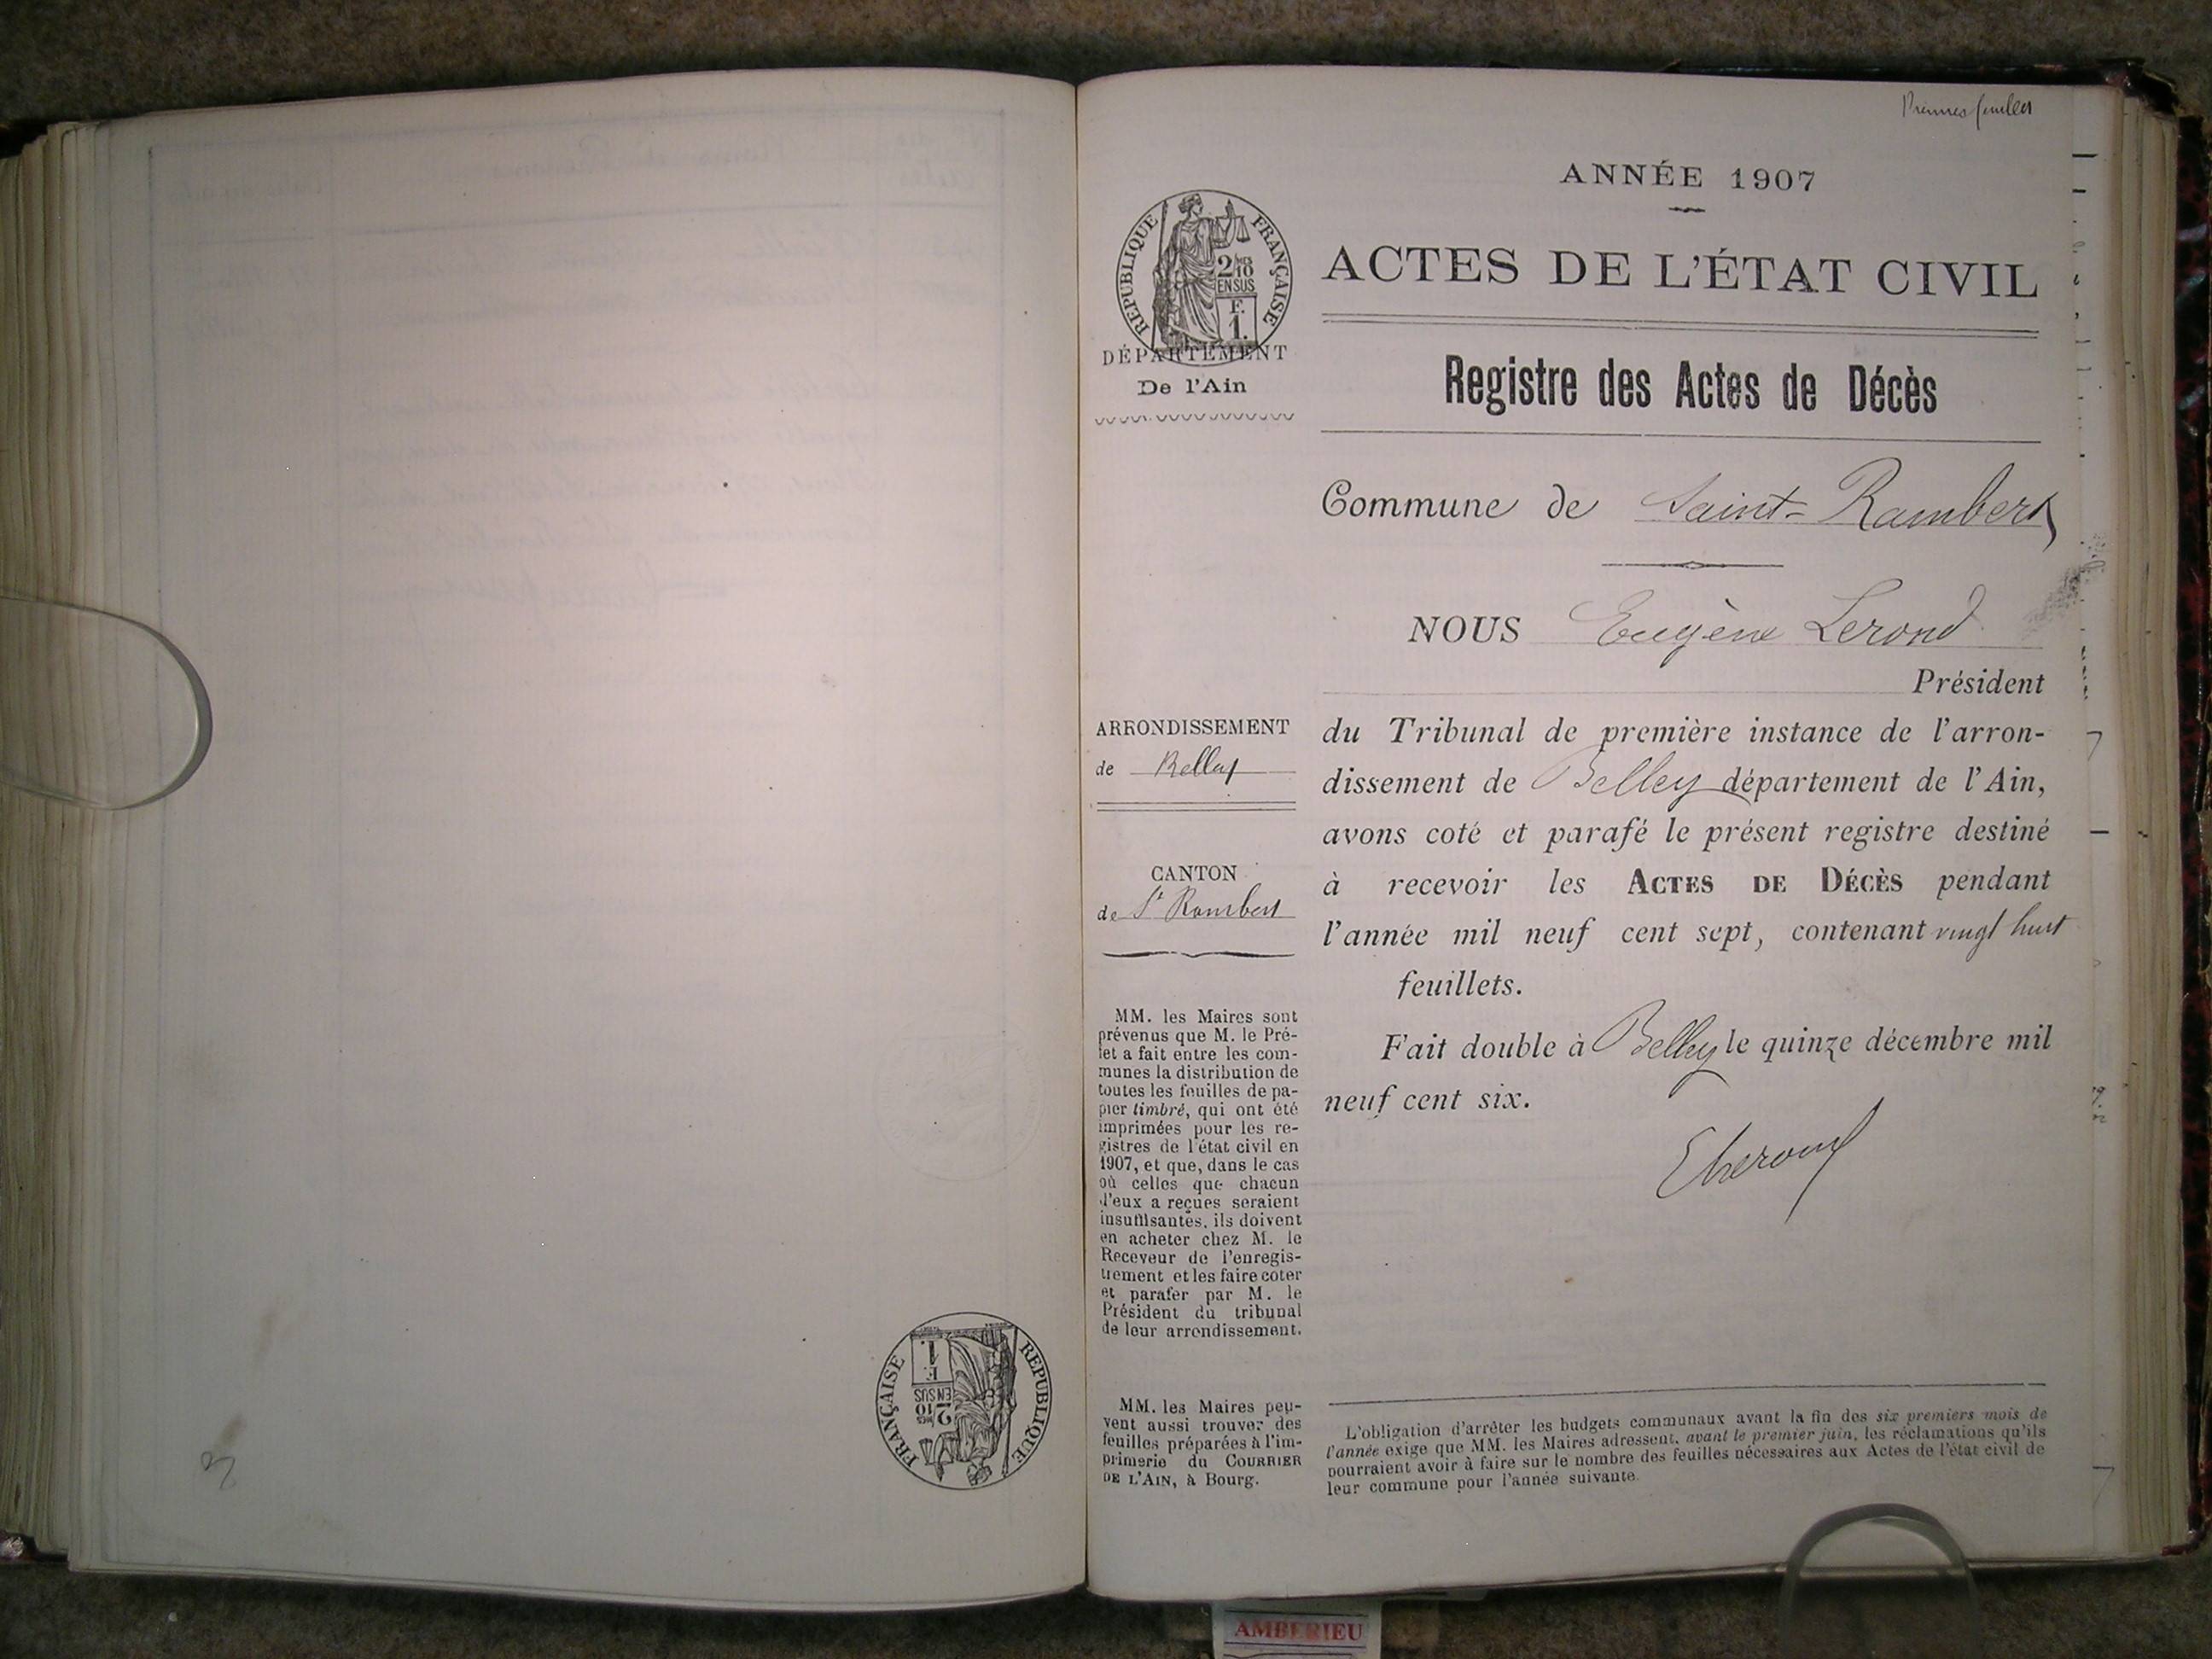 Premier feuillet
ANNÉE 1907
ACTES DE L'ÉTAT CIVIL
RÉPUBLIQUE FRANÇAISE
2/10
EN SUS
F.
1.
DÉPARTEMENT
De l'Ain
Registre des Actes de Décès
Commune de Saint-Rambert
NOUS Eugène Lerond
Président
du Tribunal de première instance de l'arron-
dissement de Belley département de l'Ain,
avons coté et parafé le présent registre destiné
à recevoir les ACTES DE DÉCÈS pendant
l'année mil neuf cent sept, contenant vingt huit
feuillets.
Fait double à Belley le quinze décembre mil
neuf cent six.
ELerond
ARRONDISSEMENT
de Belley
CANTON
de St Rambert
MM. les Maires sont
prévenus que M. le Pré-
fet a fait entre les com-
munes la distribution de
toutes les feuilles de pa-
pier timbré, qui ont été
imprimées pour les re-
gistres de l'état civil en
1907, et que, dans le cas
où celles que chacun
d'eux a reçues seraient
insuffisantes, ils doivent
en acheter chez M. le
Receveur de l'enregis-
trement et les faire coter
et parafer par M. le
Président du tribunal
de leur arrondissement.
MM. les Maires peu-
vent aussi trouver des
feuilles préparées à l'im-
primerie du COURRIER
DE L'AIN, à Bourg.
L'obligation d'arrêter les budgets communaux avant la fin des six premiers mois de
l'année exige que MM. les Maires adressent, avant le premier juin, les réclamations qu'ils
pourraient avoir à faire sur le nombre des feuilles nécessaires aux Actes de l'état civil de
leur commune pour l'année suivante.
RÉPUBLIQUE FRANÇAISE
2/10
EN SUS
F.
1.
AMBERIEU